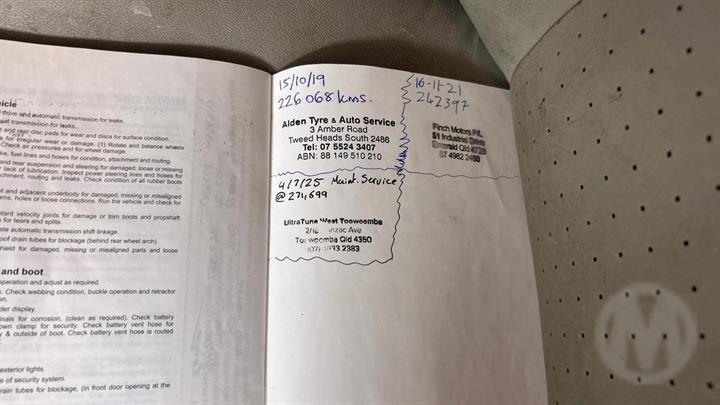 hicle
drive and automatic transmission for leaks.
transmission for leaks.
and rear disc pads for wear and discs for surface condition.
for irregular wear or damage. (1) Rotate and balance wheels
Check air pressures and for wheel damage.
ke, fuel lines and hoses for condition, attachment and routing.
and rear suspension and steering for damaged, loose or missing
lack of lubrication. Inspect power steering lines and hoses for
tachment, routing and leaks. Check condition of all rubber boots
and adjacent underbody for damaged, missing or misaligned
ams, holes or loose connections. Run the vehicle and check for
stant velocity joints for damage or torn boots and propshaft
for tears and splits.
ate automatic transmission shift linkage.
oof drain tubes for blockage (behind rear wheel arch).
shield for damaged, missing or misaligned parts and loose
and boot
operation and adjust as required.
. Check webbing condition, buckle operation and retractor
on.
der display.
inals for corrosion, (clean as required). Check battery
own clamp for security. Check battery vent hose for
y & outside of boot. Check battery vent hose is routed
exterior lights.
e of security system.
rain tubes for blockage, (in front door opening at the
15/10/19
226068 kms.
Alden Tyre & Auto Service
3 Amber Road
Tweed Heads South 2486
Tel: 07 5524 3407
ABN: 88 149 510 210
4/7/25 Maint. Service
@ 274699
UltraTune West Toowoomba
2/16 Anzac Ave
Toowoomba Qld 4350
(07) 4633 2383
16-11-21
242397
Finch Motors P/L
51 Industrial Drive
Emerald Qld 4720
07 4982 2480
M